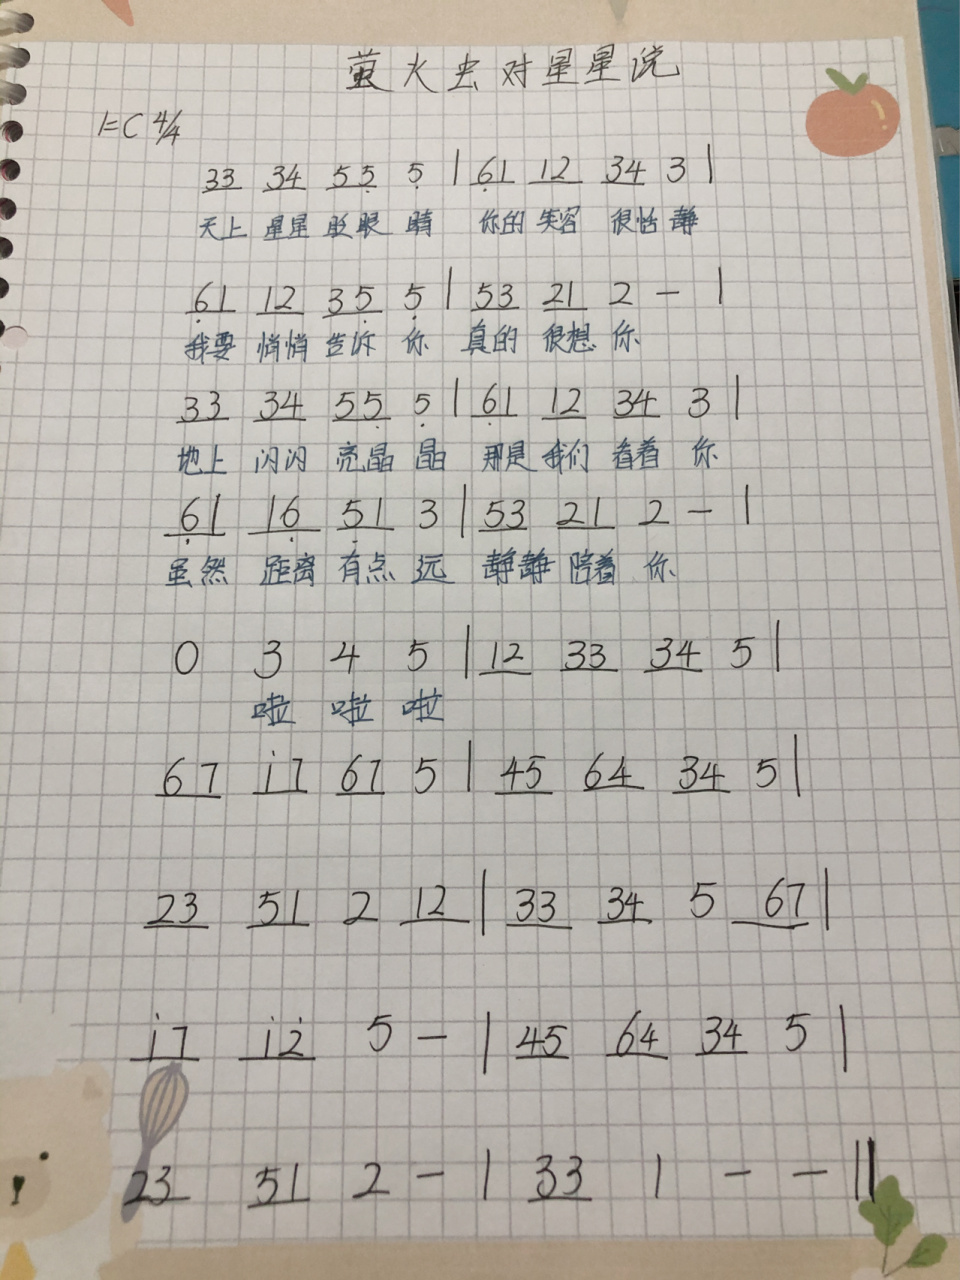 萤火虫对星星说
1=C 4/4
33 34 55̣ 5̣ | 6̣1 12 34 3 |
天上 星星 眨眼 睛 你的 笑容 很恬 静
6̣1 12 35̣ 5̣ | 53 21 2 — |
我要 悄悄 告诉 你 真的 很想 你
33 34 55̣ 5̣ | 6̣1 12 34 3 |
地上 闪闪 亮晶 晶 那是 我们 看着 你
6̣1 16̣ 5̣1 3 | 53 21 2 — |
虽然 距离 有点 远 静静 陪着 你
0 3 4 5 | 12 33 34 5 |
啦 啦 啦
67 i7 67 5 | 45 64 34 5 |
23 51 2 12 | 33 34 5 67 |
i7 i2̇ 5 — | 45 64 34 5 |
23 51 2 — | 33 1 — — ‖